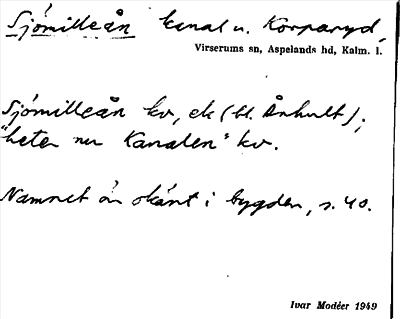 Sjömilleån kanal u. Korparyd,
Virserums sn, Aspelands hd, Kalm. l.
Sjömilleån kv, ek (bl. Århult);
"heter nu Kanalen" kv.
Namnet är okänt i bygden, s. 40.
Ivar Modéer 1949